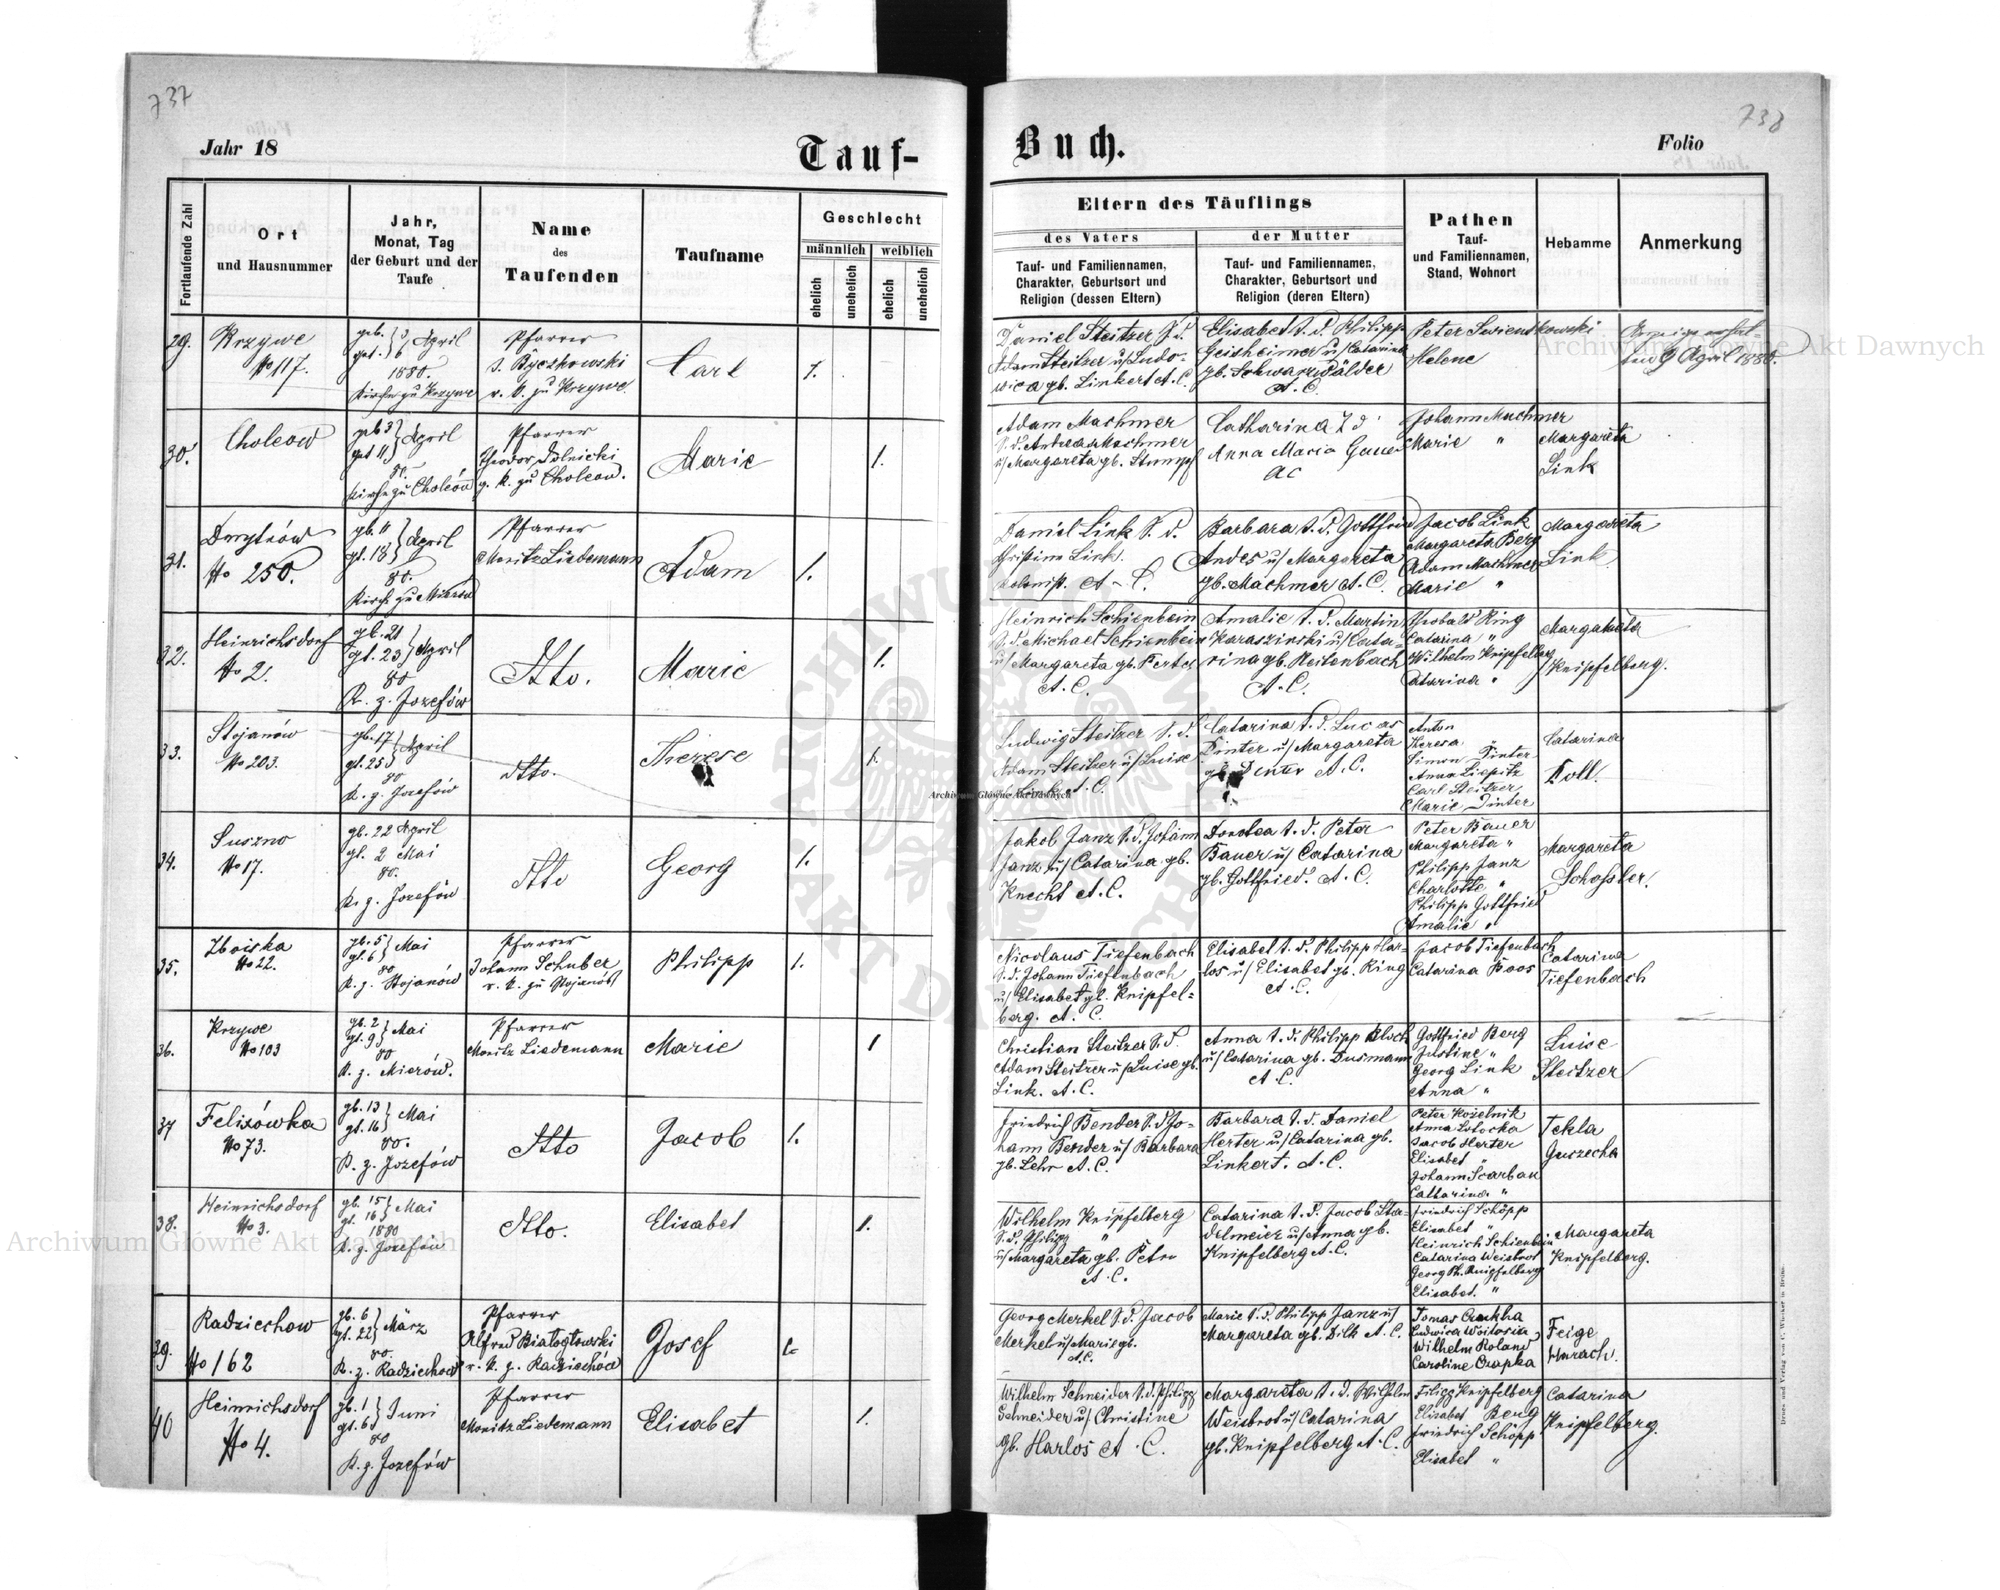 737
738
Jahr 18
Tauf-
Buch.
Folio
Fortlaufende Zahl
Ort
und Hausnummer
Jahr,
Monat, Tag
der Geburt und der
Taufe
Name
des
Taufenden
Taufname
Geschlecht
männlich
weiblich
ehelich
unehelich
ehelich
unehelich
Eltern des Täuflings
des Vaters
der Mutter
Tauf- und Familiennamen,
Charakter, Geburtsort und
Religion (dessen Eltern)
Tauf- und Familiennamen,
Charakter, Geburtsort und
Religion (deren Eltern)
Pathen
Tauf-
und Familiennamen,
Stand, Wohnort
Hebamme
Anmerkung
29.
Krzywe
No 117.
geb. 3
get. 6 } April
1880.
Kirche zu Krzywe
Pfarrer
r. k. zu Krzywe
Carl
1.
Daniel Steitzer S. d.
Adam Steitzer u/ Ludo-
wica gb. Linkert A. C.
Elisabet t. d. Philipp
Geisheimer u/ Catarina
gb. Schwarzwälder
A. C.
Peter Swientkowski
Helene
den 9 April 1880.
30.
Choleow
geb 3
get 11 } April
80.
Kirche zu Choleów
Pfarrer
Theodor Dolnicki
g. k. zu Choleow.
Marie
1.
Adam Machmer
S. d. Andreas Machmer
u/ Margareta gb. Stumpf
Catharina
Anna Maria
AC
Johann Machmer
Marie "
Margareta
Link
31.
Dmytrów
No 250.
gb. 11
gt. 18 } April
80.
Kirche zu Mierów
Pfarrer
Moritz Liedemann
Adam
1.
Daniel Link S. d.
Christine Link.
A. C.
Barbara t. d. Gottfried
Andes u/ Margareta
gb. Machmer A. C.
Jacob Link
Margareta Berg
Adam Machmer
Marie "
Margareta
Link
32.
Heinrichsdorf
No 2.
gb. 21
gt. 23 } April
80
K. z. Jozefów
dtto.
Marie
1.
Heinrich Schienbein
S. d. Michael Schienbein
u/ Margareta gb. Ferter
A. C.
Amalie t. d. Martin
Karaszinski u/ Cata-
rina gb. Reitenbach
A. C.
Thobald Ring
Catarina "
Wilhelm Knipfelberg
Catarina "
Margareta
Knipfelberg.
33.
Stojanów
No 203.
gb. 17
gt. 25 } April
80
K. z. Jozefów
dtto.
Therese
1.
Ludwig Steitzer S. d.
Adam Steitzer u/ Luise
A. C.
Catarina t. d. Lucas
Dinter u/ Margareta
gb. Denter A. C.
Anton
Theresa "
Simon Dinter
Anna Liepitz
Carl Steitzer
Marie Dinter
Catarina
Koll.
34.
Suszno
No 17.
gb. 22 April
gt. 2 Mai
80.
K. z. Jozefów
dtto
Georg
1.
Jakob Janz S. d. Johann
Janz u/ Catarina gb.
Knecht A. C.
Dorotea t. d. Peter
Bauer u/ Catarina
gb. Gottfried. A. C.
Peter Bauer
Margareta "
Philipp Janz
Charlotte "
Philipp Gottfried
Amalie "
Margareta
Schossler.
35.
Zboiska
No 22.
gb. 5
gt. 6 } Mai
80
K. z. Stojanów
Pfarrer
Johann Schuber
r. k. zu Stojanów
Philipp
1.
Nicolaus Tiefenbach
S. d. Johann Tiefenbach
u/ Elisabet gb. Knipfel-
berg. A. C.
Elisabet t. d. Philipp Har-
los u/ Elisabet gb. Ring
A. C.
Jacob Tiefenbach
Catarina Boos
Catarina
Tiefenbach
36.
Krzywe
No 103
gb. 2
gt. 9 } Mai
80
K. z. Mierów.
Pfarrer
Moritz Liedemann
Marie
1
Christian Steitzer S. d.
Adam Steitzer u/ Luise gb.
Link. A. C.
Anna t. d. Philipp Bloch
u/ Catarina gb. Dusmann
A. C.
Gottfried Berg
Justine "
Georg Link
Anna "
Luise
Steitzer
37
Felixówka
No 73.
gb. 13
gt. 16 } Mai
80.
K. z. Jozefów
dtto
Jacob
1.
Friedrich Bender S. d. Jo-
hann Bender u/ Barbara
gb. Lehr A. C.
Barbara t. d. Daniel
Herter u/ Catarina gb.
Linkert. A. C.
Peter Koželnik
Anna
Jacob Herter
Elisabet "
Johann Scarban
Catharina "
Tekla
Guszecha
38.
Heinrichsdorf
No 3.
gb. 15
gt. 16 } Mai
1880
K. z. Jozefów
dtto.
Elisabet
1.
Wilhelm Knipfelberg
S. d. Philipp "
u/ Margareta gb. Petri
A. C.
Catarina t. d. Jacob Sta-
delmeier u/ Anna gb.
Knipfelberg A. C.
Friedrich Schöpp
Elisabet "
Heinrich Schienbein
Catarina Weisbrot
Georg Ph. Knipfelberg
Elisabet. "
Margareta
Knipfelberg.
39.
Radziechow
No 162
gb. 6
gt. 22 } März
80.
K. z. Radziechow
Pfarrer
Alfred Białogłowski
r. k. z. Radziechów
Josef
1.
Georg Merkel S. d. Jacob
Merkel u/ Marie gb.
A. C.
Marie t. d. Philipp Janz u/
Margareta gb. Dilk A. C.
Tomas Czapkha
Ludwica Woitowia
Wilhelm Roland
Caroline Czapka
Feige
Harach.
40
Heinrichsdorf
No 4.
gb. 1
gt. 6 } Juni
80
K. z. Jozefów
Pfarrer
Moritz Liedemann
Elisabet
1.
Wilhelm Schneider S. d. Philipp
Schneider u/ Christine
gb. Harlos A. C.
Margareta t. d. Wilhelm
Weisbrot u/ Catarina
gb. Knipfelberg A. C.
Filipp Knipfelberg
Elisabet Berg
Friedrich Schöpp
Elisabet "
Catarina
Knipfelberg.
Archiwum Główne Akt Dawnych
Archiwum Główne Akt Dawnych
Archiwum Główne Akt Dawnych